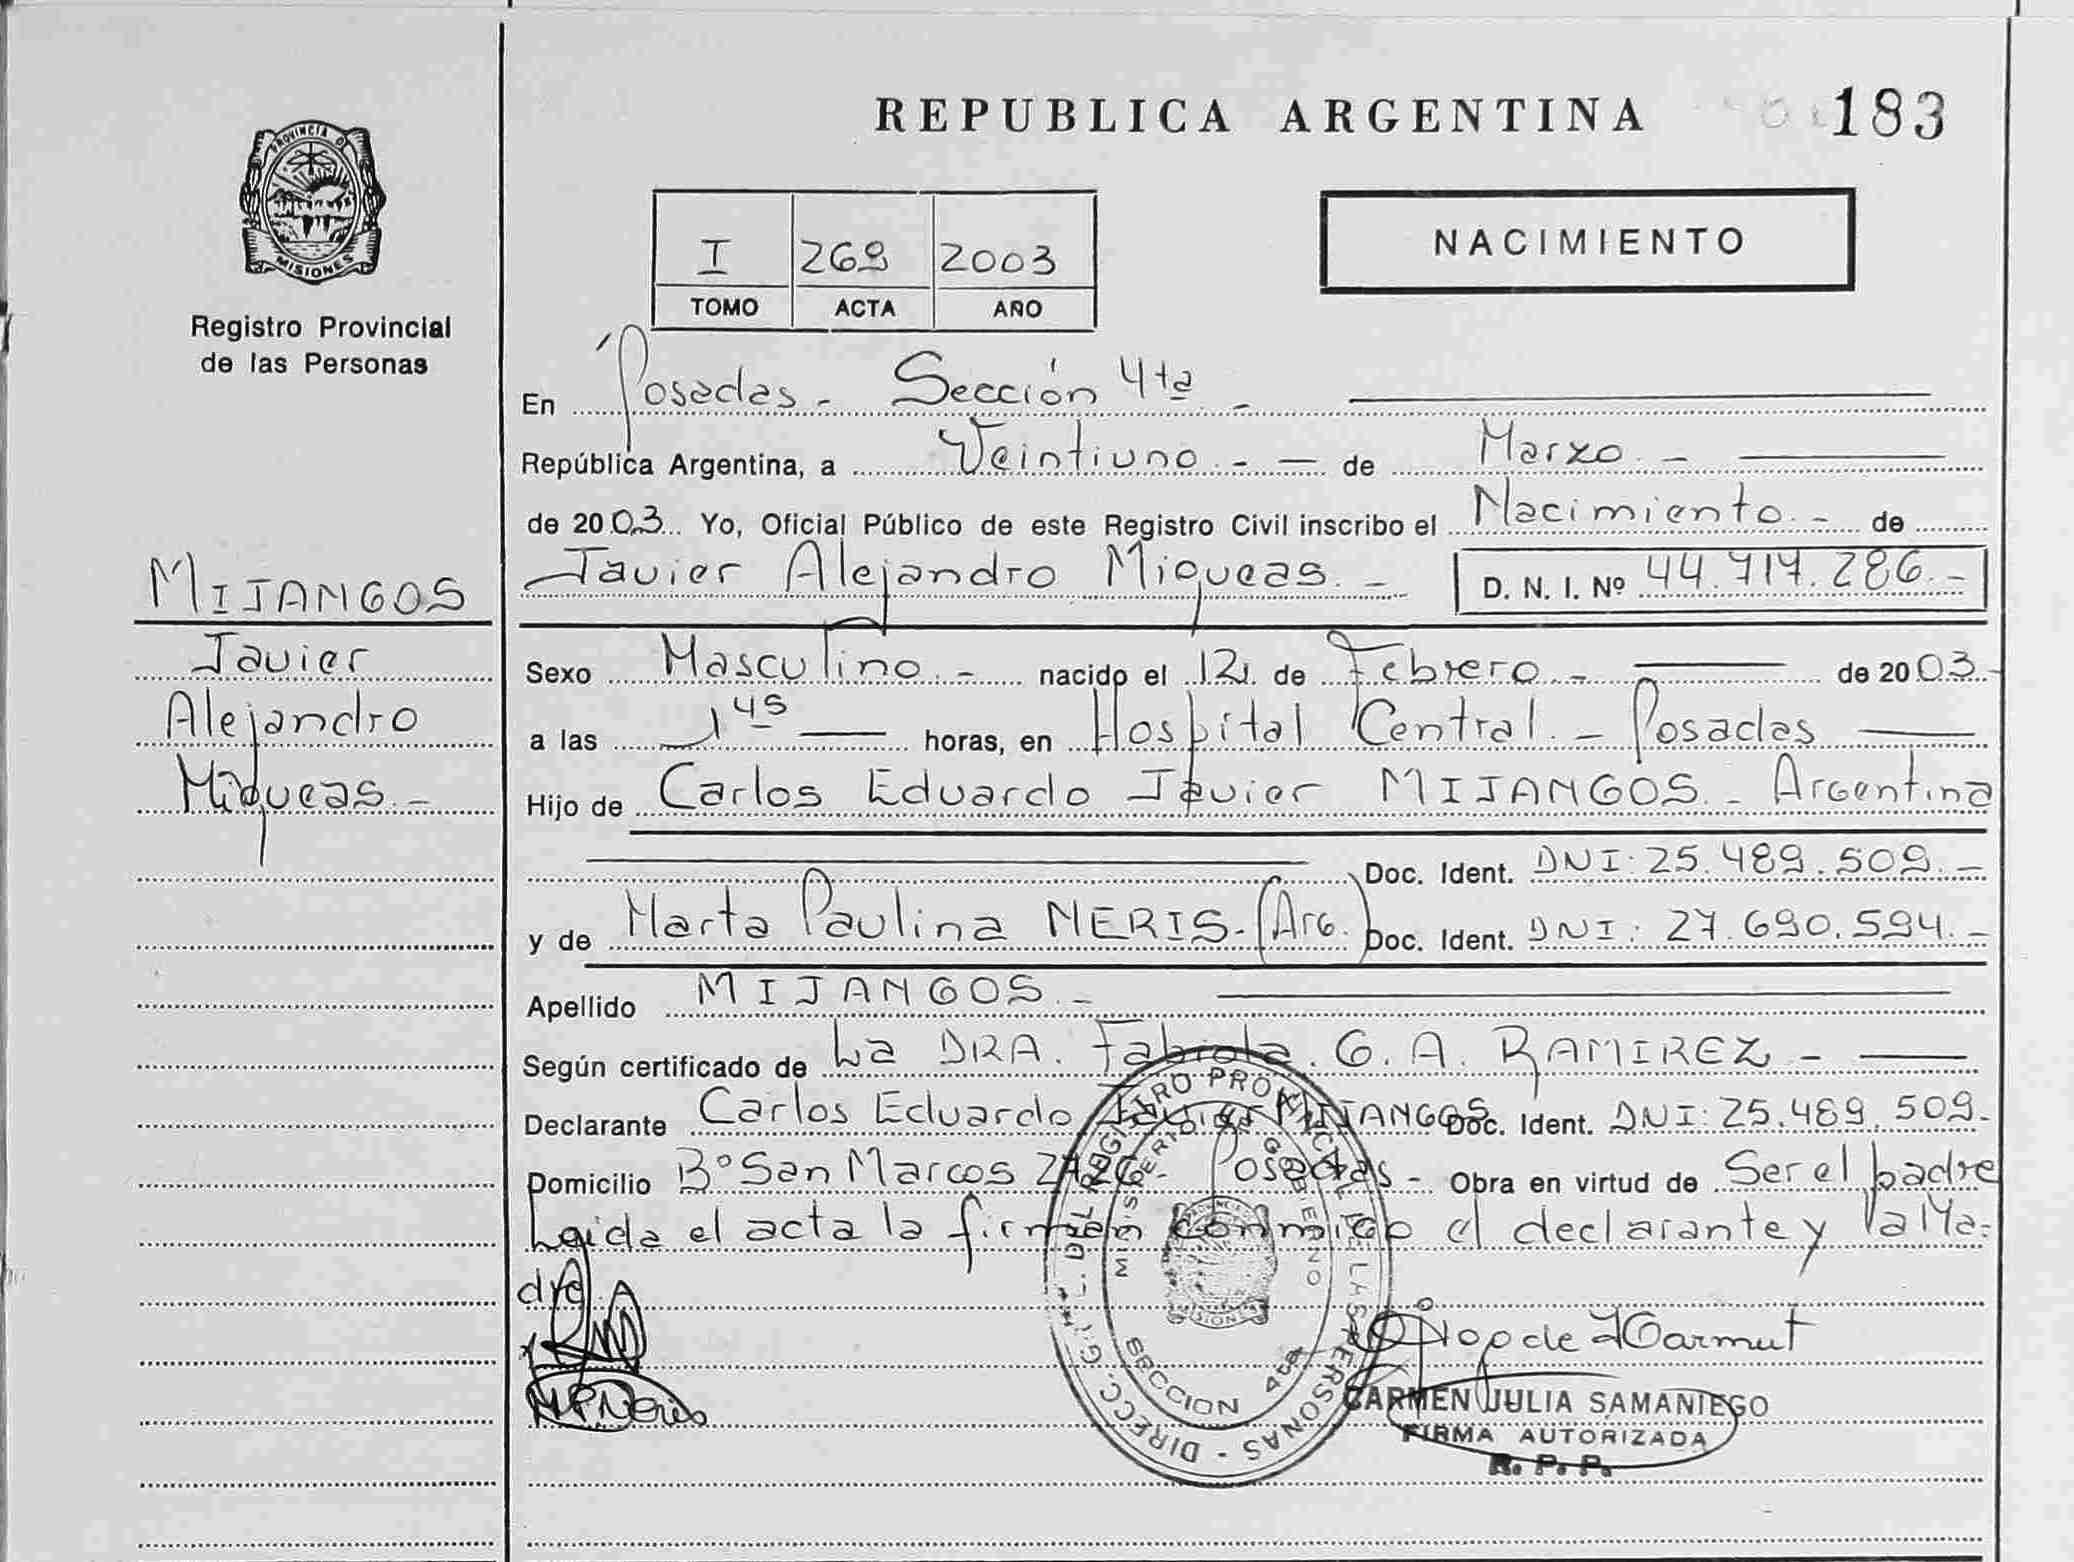 REPUBLICA ARGENTINA
183
PROVINCIA D
MISIONES
Registro Provincial
de las Personas
I 269 2003
TOMO ACTA AÑO
NACIMIENTO
En Posadas - Sección 4ta -
República Argentina, a Veintiuno - - de Marzo -
de 2003 Yo, Oficial Público de este Registro Civil inscribo el Nacimiento - de
Javier Alejandro Miqueas - D. N. I. Nº 44.717.286.-
MIJANGOS
Javier
Alejandro
Miqueas. -
Sexo Masculino - nacido el 12 de Febrero - de 2003.-
a las 1 45 horas, en Hospital Central. - Posadas
Hijo de Carlos Eduardo Javier MIJANGOS - Argentina
Doc. Ident. DNI: 25.489.509.-
y de Marta Paulina NERIS - (Arg.) Doc. Ident. DNI: 27.690.594.-
Apellido MIJANGOS. -
Según certificado de La DRA. Fabiola G. A. RAMIREZ -
Declarante Carlos Eduardo Javier MIJANGOS Doc. Ident. DNI: 25.489.509.-
Domicilio Bº San Marcos Posadas - Obra en virtud de Ser el padre
Leida el acta la firman conmigo el declarante y la Ma-
dre
MPNeris
DIRECC. GRL. DEL REGISTRO PROVINCIAL DE LAS PERSONAS -
MINISTERIO DE GOBIERNO
SECCION 4ta
CARMEN JULIA SAMANIEGO
FIRMA AUTORIZADA
R. P. P.